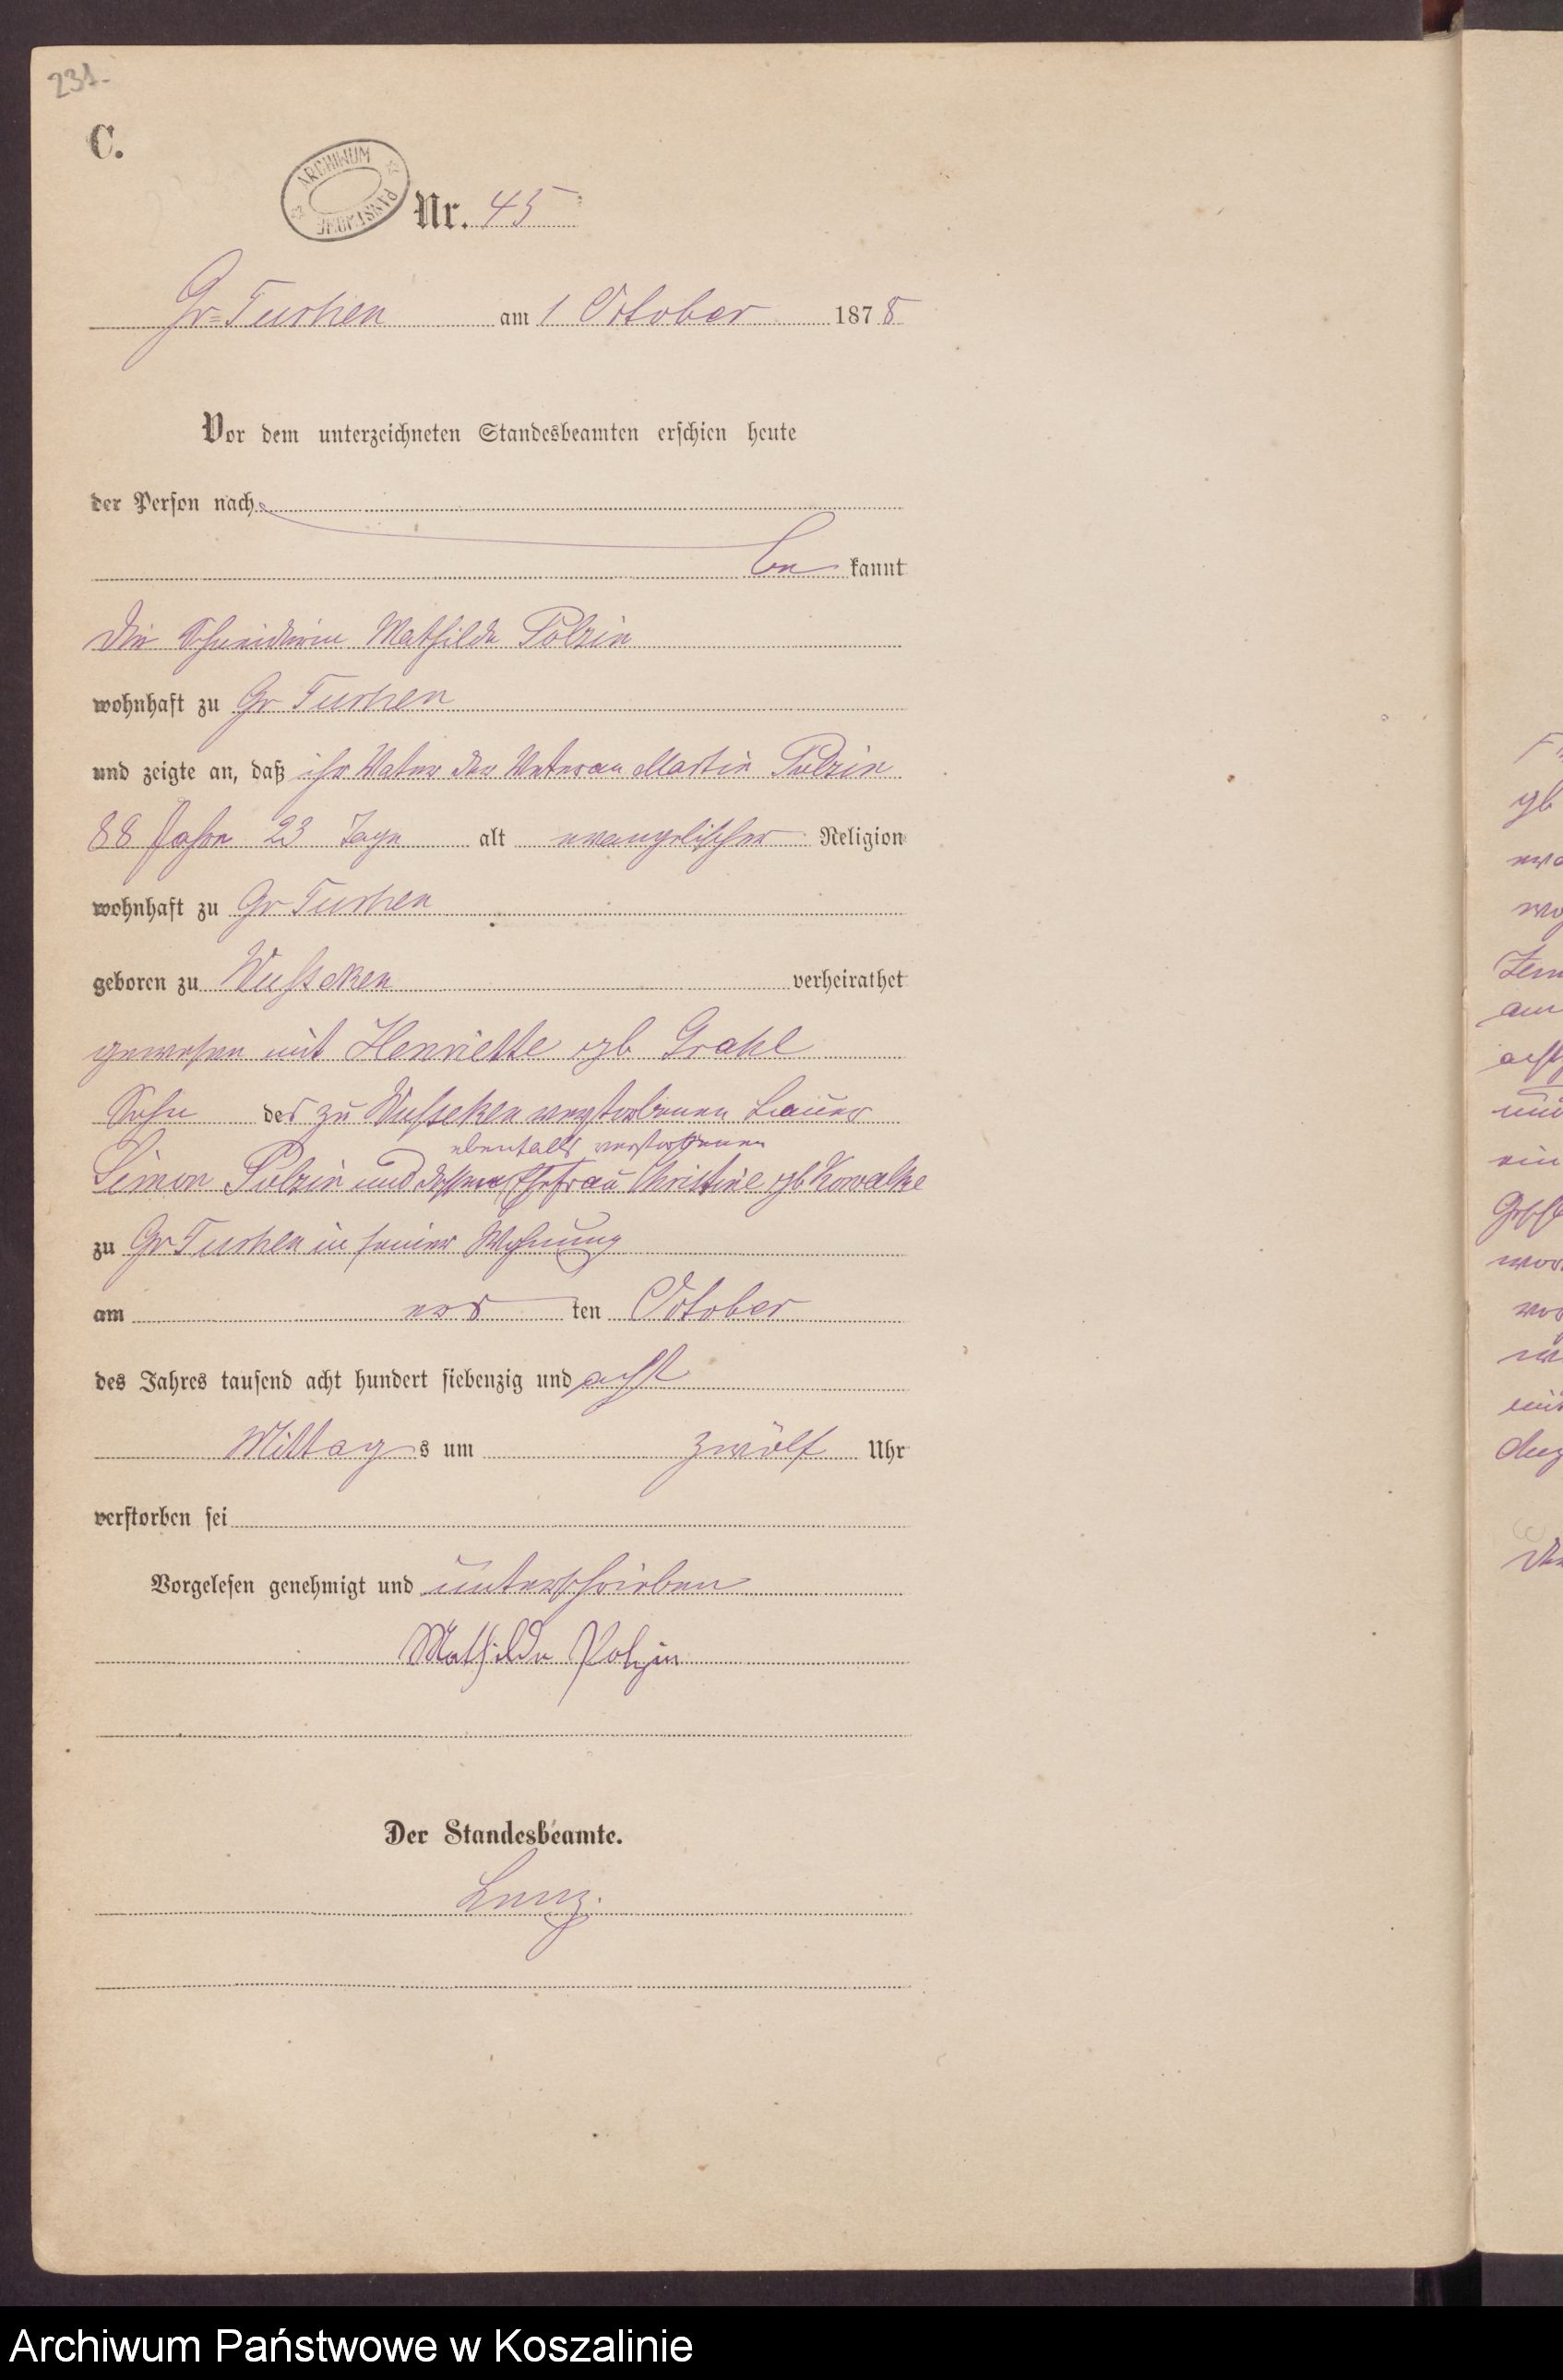 231.
C.
ARCHIWUM PAŃSTWOWE
Nr. 45
Gr=Tuchen am 1 October 1878
Vor dem unterzeichneten Standesbeamten erschien heute
der Person nach
be kannt
die Schneiderin Mathilde Polzin
wohnhaft zu Gr Tuchen
und zeigte an, daß ihr Vater der Veteran Martin Polzin
88 Jahre 23 Tage alt evangelischer Religion
wohnhaft zu Gr Tuchen
geboren zu Wusseken verheirathet
gewesen mit Henriette geb Grahl
Sohn des zu Wusseken verstorbenen Bauer
ebenfalls verstorbenen
Simon Polzin und dessen Ehefrau Christine geb Kowalke
zu Gr Tuchen in seiner Wohnung
am ten October
des Jahres tausend acht hundert siebenzig und acht
Mittag s um zwölf Uhr
verstorben sei
Vorgelesen genehmigt und unterschrieben
Mathilde Polzin
Der Standesbeamte.
Archiwum Państwowe w Koszalinie